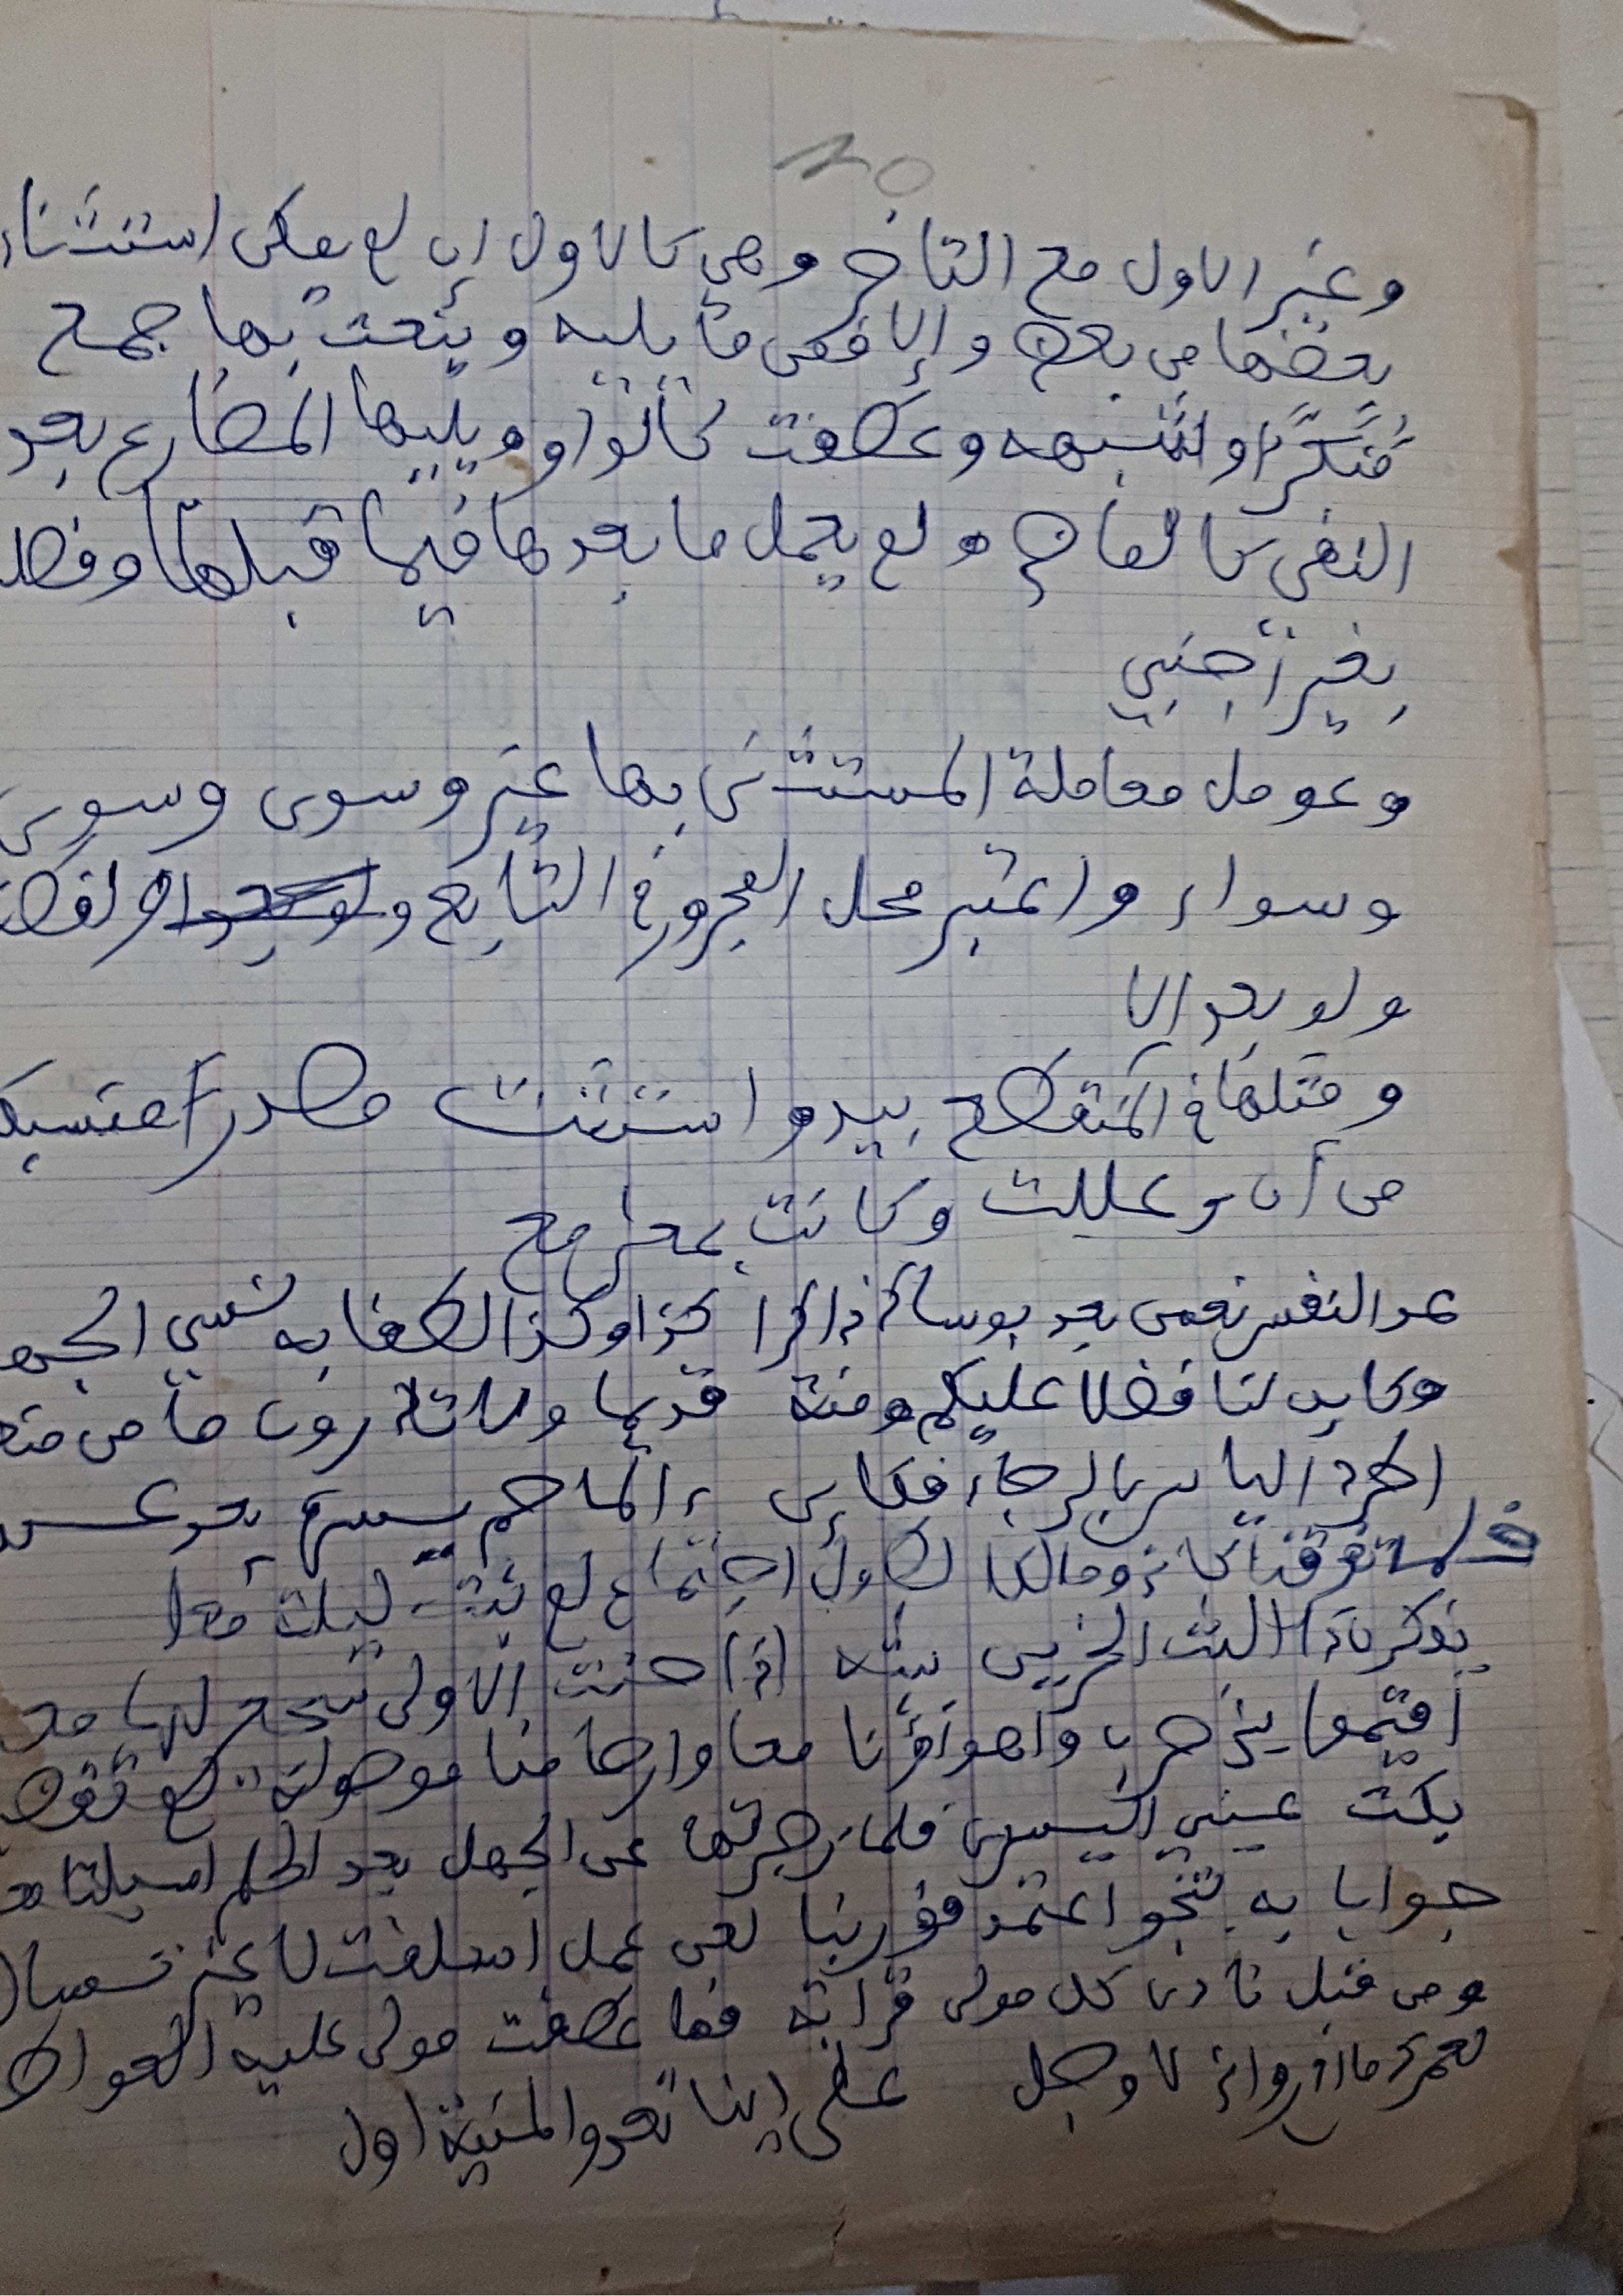 ٢٥
وغير الاول مع التاخر وهي كالاول إن لم يمكن استثناء
بعضها من بعض وإلا فمن ما يليه وينعت بها جمع
منكر او لشبهه وعطفت كالواو ويليها المضارع بعد
النفي كالماضي ولم يعمل ما بعدها فيما قبلها وفصل
بغير أجنبي
وعومل معاملة المستثنى بها غير وسوى وسوى
وسواء واعتبر محل المجرور في التابع و
ولو بعد الا
ومثلها في المنقطع بيد واستثنت مصدرا منسبك
من أن وعللت وكانت بمعنى مع
عد النفس نعمى بعد بوساك ذاكرا كذا وكذا لطفا به نسي الجهد
وكاين لنا فضلا عليكم ومنة قديما ولا تدرون ما من
اطرد الياس بالرجاء فكاين الما حم يسره بعد عسر
فلما تفرقنا كاني ومالكا لطول اجتماع لم نبت ليلة معا
يذكرن ذا البث الحزين ببثه إذا حنت الاولى سجعن لها مع
أفيقوا بني حرب وأهواؤنا معا وارحامنا موصولة لم تقضب
بكت عيني اليسرى فلما زجرتها عن الجهل بعد الحلم اسبلتا معا
جوابا به تنجو اعتمد فوربنا لعن عمل اسلفت لا غير تسأل
ومن قبل نادى كل مولى قرابة فما عطفت مولى عليه العواطف
لعمرك ما ادري وإني لاوجل على اينا تعدو المنية اول